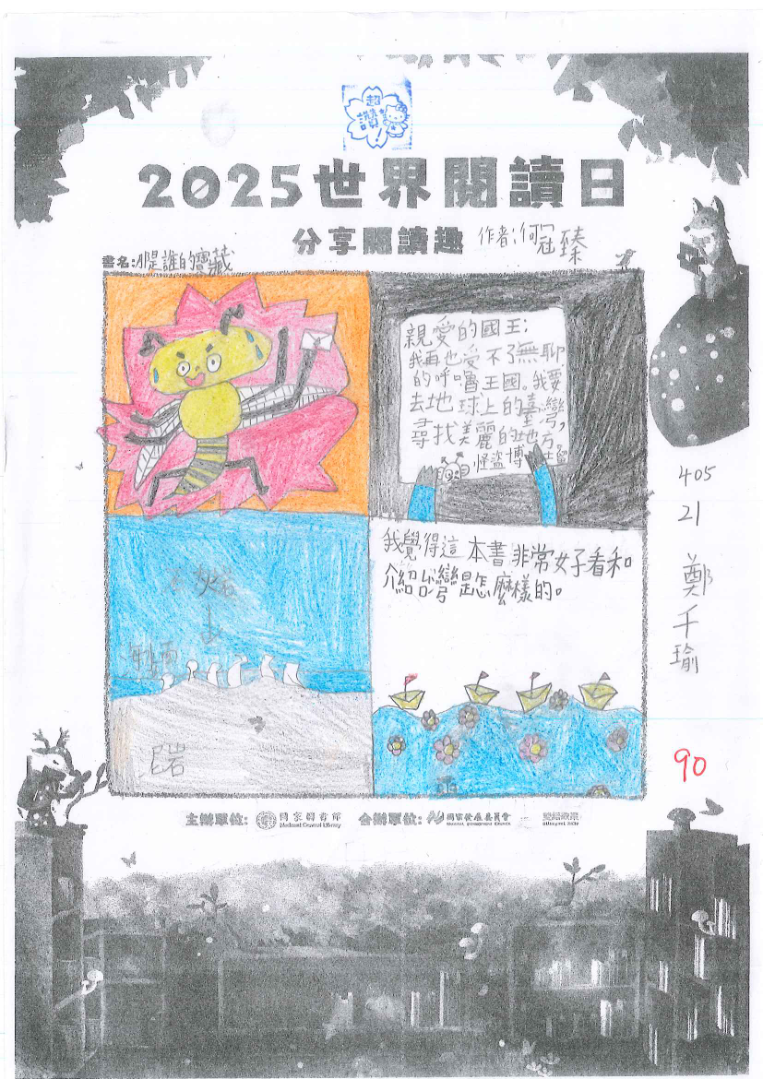 超
讚!
2025世界閱讀日
分享閱讀趣
作者:何冠臻
書名:是誰的寶藏
親愛的國王:
我再也受不了無聊
的呼嚕王國。我要
去地球上的臺灣,
尋找美麗的地方。
怪盜博士
我覺得這本書非常好看和
介紹台灣是怎麼樣的。
泥岩
405
21
鄭千瑜
90
主辦單位:
國家圖書館
National Central Library
合辦單位:
國家發展委員會